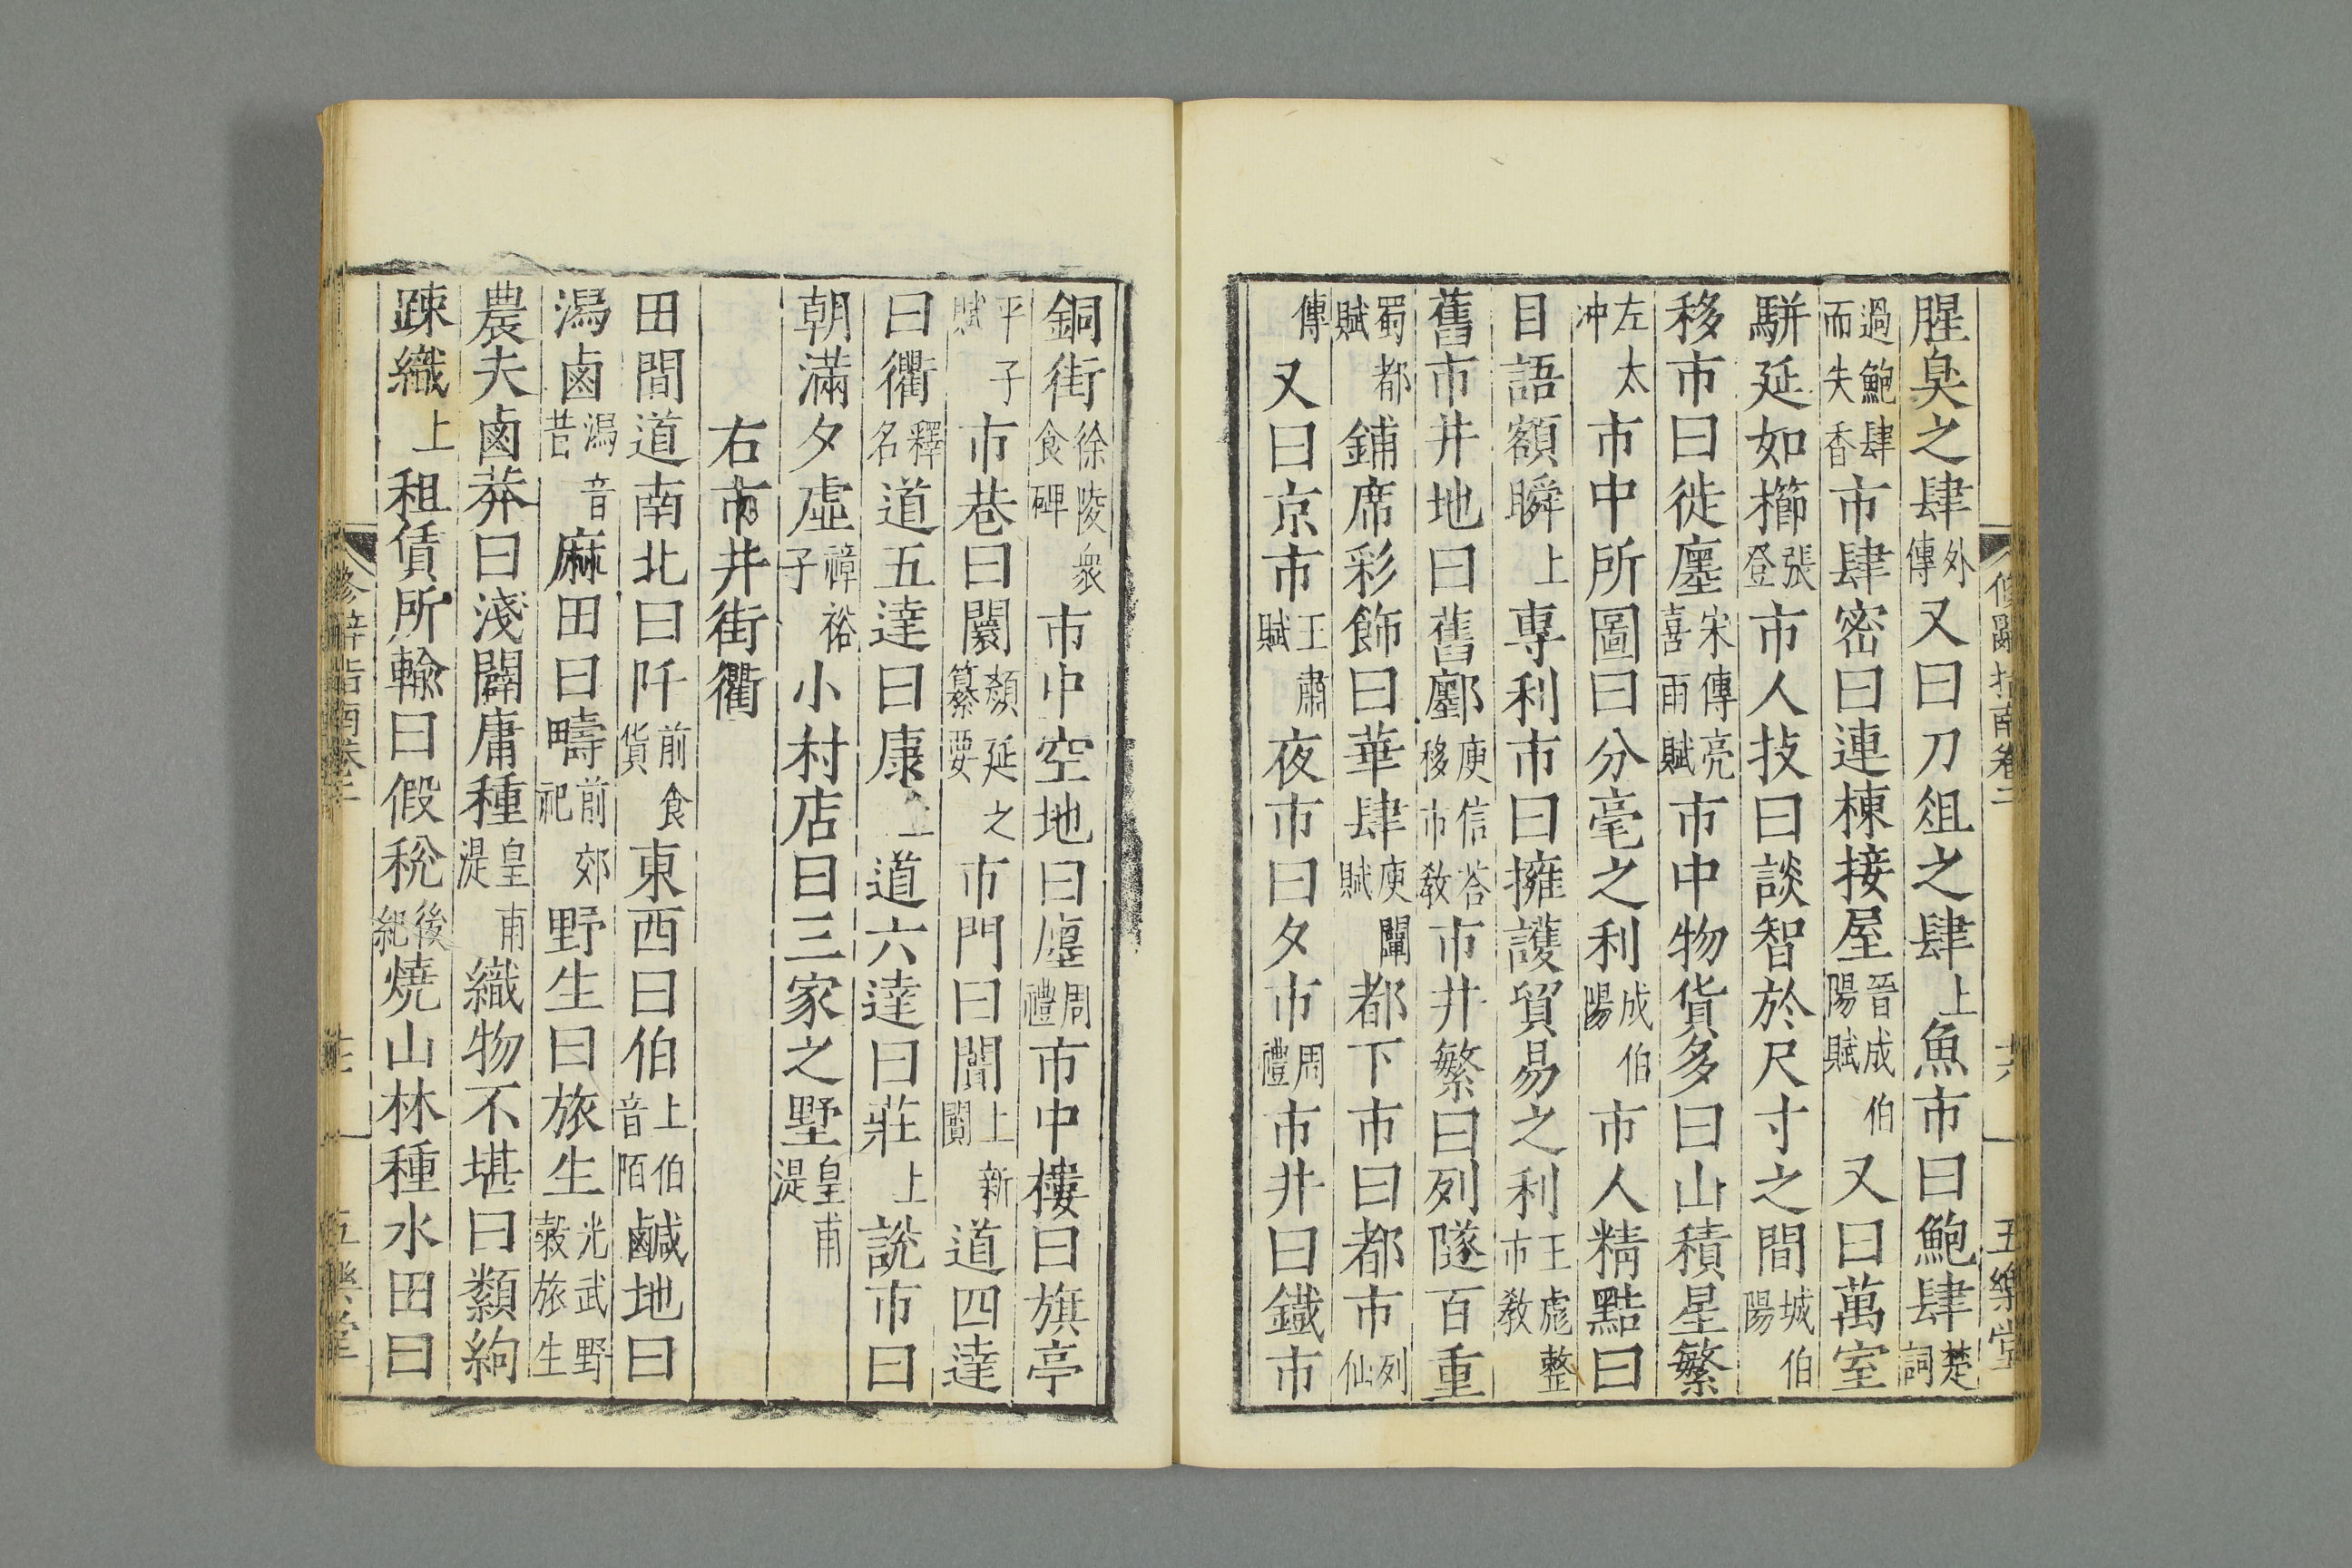 腥臭之肆外傳又曰刀俎之肆上魚市曰鮑肆楚詞
過鮑肆而失香市肆密曰連棟接屋晉成伯陽賦又曰萬室
駢延如櫛張登市人技曰談智於尺寸之間城伯陽
移市曰徙廛宋傳亮喜雨賦市中物貨多曰山積星繁
左太冲市中所圖曰分毫之利成伯陽市人精點曰
目語額瞬上專利市曰擁護貿易之利王彪整市教
舊市井地曰舊鄽庾信荅移市教市井繁曰列隧百重
蜀都賦鋪席彩飾曰華肆庾闡賦都下市曰都市列仙
傳又曰京市王肅賦夜市曰夕市周禮市井曰鐵市
修辭指南卷二 六 五樂堂
銅街徐陵衆食碑市中空地曰廛周禮市中樓曰旗亭
平子賦市巷曰闤顏延之纂要市門曰闠上新闠道四達
曰衢釋名道五達曰康上道六達曰莊上說市曰
朝滿夕虛禕裕子小村店曰三家之墅皇甫湜
右市井街衢
田間道南北曰阡前食貨東西曰伯上伯音陌鹹地曰
潟鹵潟音昔麻田曰疇前郊祀野生曰旅生光武野穀旅生
農夫鹵莽曰淺闢庸種皇甫湜織物不堪曰纇絇
踈織上租賃所輸曰假稅後紀燒山林種水田曰
修辭指南卷二 五樂堂